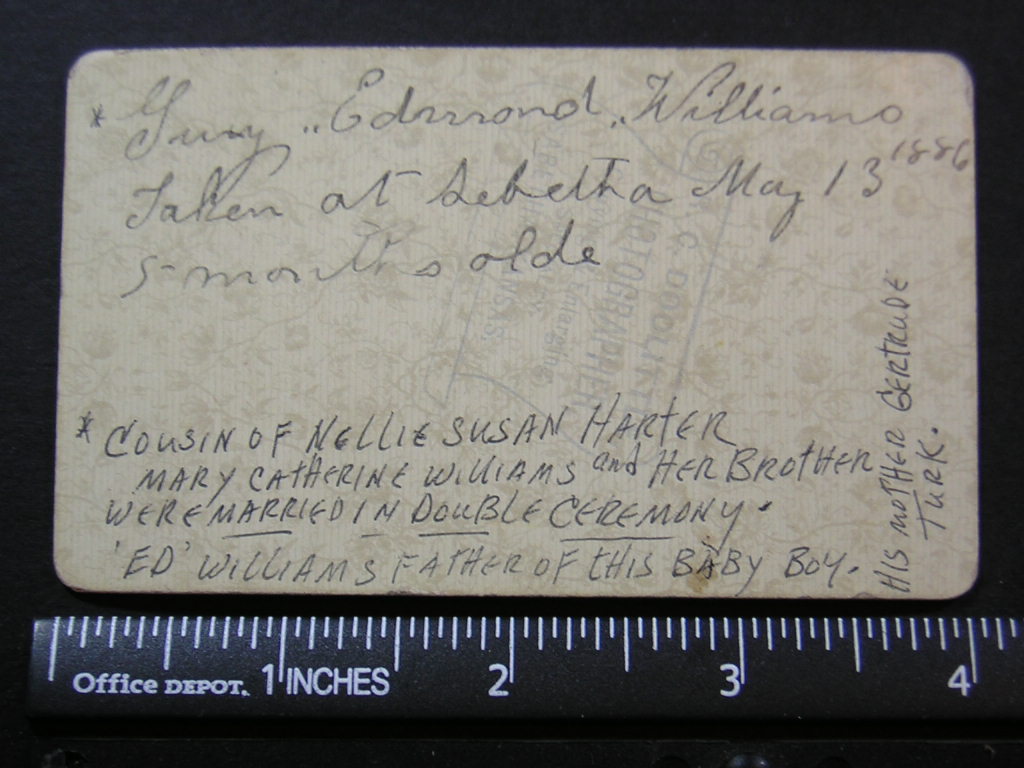 * Guy „Edmond „Williams
Taken at Sebetha May 13 1886
5-months olde
* COUSIN OF NELLIE SUSAN HARTER
MARY CATHERINE WILLIAMS and HER BROTHER
WERE MARRIED IN DOUBLE CEREMONY.
'ED' WILLIAMS FATHER OF THIS BABY BOY.
HIS MOTHER GERTRUDE
TURK.
PHOTOGRAPHER
Office DEPOT. 1 INCHES 2 3 4